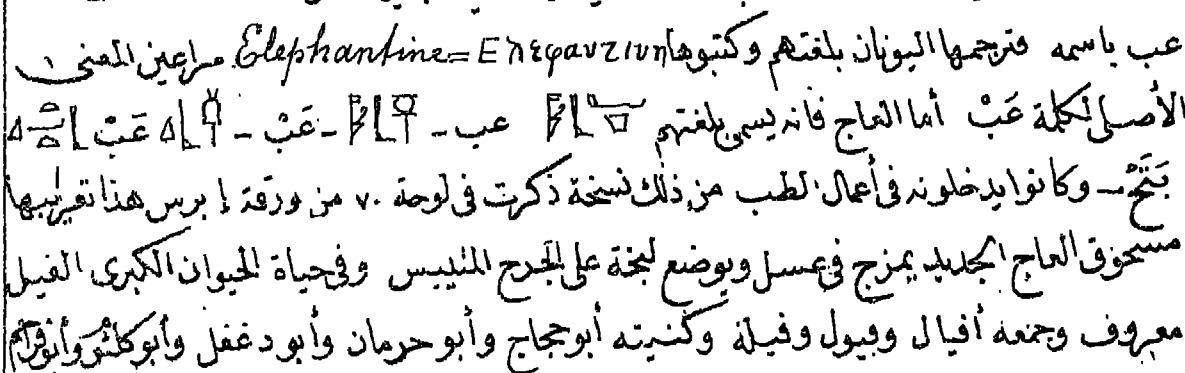 عب باسمه فترجمها اليونان بلغتهم وكتبوها Elephantine=Ελεφαντινη مراعين المعنى
الأصلى لكلمة عَبْ أما العاج فانه يسمى بلغتهم عب - عَبْ - عَبْ
بَتَحْ - وكانوا يدخلونه فى أعمال الطب من ذلك نسخة ذكرت فى لوحة ٧٠ من ورقة إبرس هذا تعريبها
مسحوق العاج الجديد يمزج فى عسل ويوضع لبخة على الجرح المتيبس وفى حياة الحيوان الكبرى الفيل
معروف وجمعه أفيال وفيول وفيلة وكنيته أبو حجاج وأبو حرمان وأبو دغفل وأبو كلثوم وأبو مزاحم